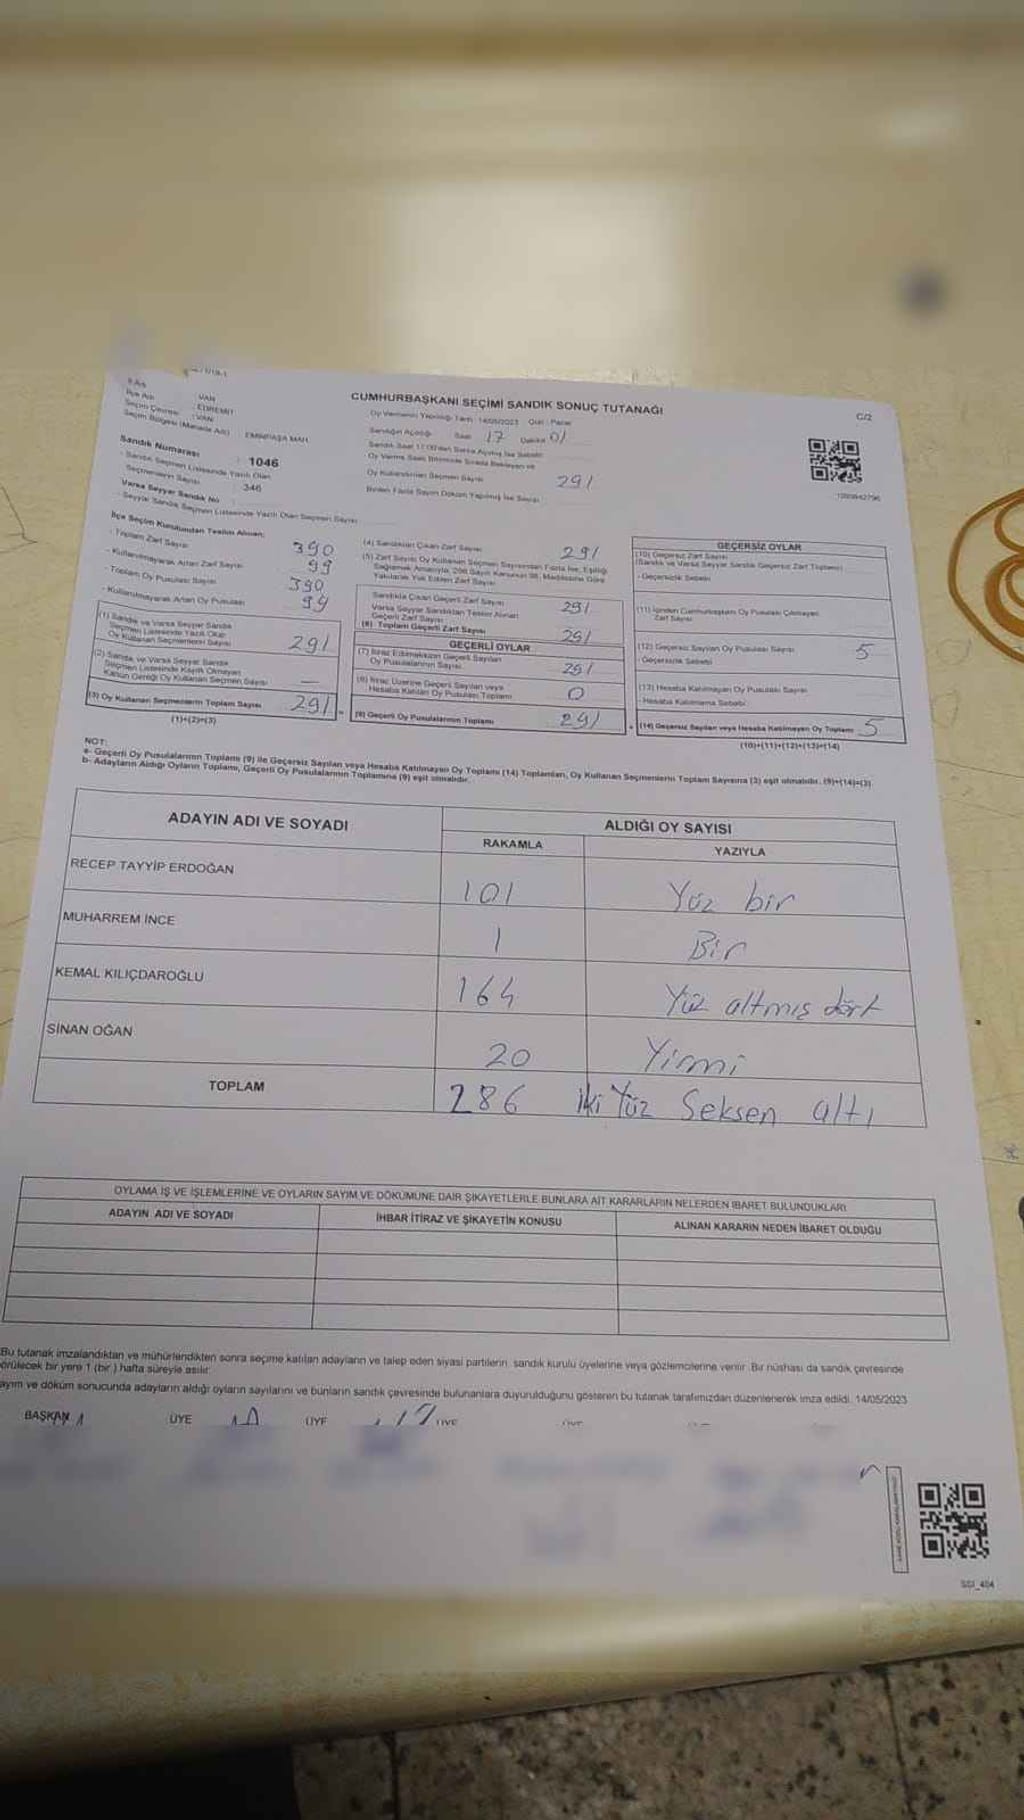 CUMHURBAŞKANI SEÇİMİ SANDIK SONUÇ TUTANAĞI
C/2
VAN
EDREMİT
VAN
Seçim Bölgesi (Mahalle Adı) : EMİNPAŞA MAH.
Oy Vermenin Yapıldığı Tarih : 14/05/2023 Gün : Pazar
Sandığın Açıldığı Saat 17 Dakika 01
Oy Kullandırılan Seçmen Sayısı 291
Sandık Numarası : 1046
- Sandık Seçmen Listesinde Yazılı Olan
Seçmenlerin Sayısı : 346
Varsa Seyyar Sandık No
- Seyyar Sandık Seçmen Listesinde Yazılı Olan Seçmen Sayısı
İlçe Seçim Kurulundan Teslim Alınan;
- Toplam Zarf Sayısı 390
- Kullanılmayarak Artan Zarf Sayısı 99
- Toplam Oy Pusulası Sayısı 390
- Kullanılmayarak Artan Oy Pusulası 99
(1) Sandık ve Varsa Seyyar Sandık
Seçmen Listesinde Yazılı Olup
Oy Kullanan Seçmenlerin Sayısı 291
(2) Sandık ve Varsa Seyyar Sandık
Seçmen Listesinde Kayıtlı Olmayan
Kanun Gereği Oy Kullanan Seçmen Sayısı —
(3) Oy Kullanan Seçmenlerin Toplam Sayısı 291
(1)+(2)=(3)
(4) Sandıktan Çıkan Zarf Sayısı 291
Sandıkta Çıkan Geçerli Zarf Sayısı 291
Varsa Seyyar Sandıktan Teslim Alınan
Geçerli Zarf Sayısı
(6) Toplam Geçerli Zarf Sayısı 291
GEÇERLİ OYLAR
(7) İtiraz Edilmeksizin Geçerli Sayılan
Oy Pusulalarının Sayısı 291
(8) İtiraz Üzerine Geçerli Sayılan veya
Hesaba Katılan Oy Pusulası Toplamı 0
(9) Geçerli Oy Pusulalarının Toplamı 291
GEÇERSİZ OYLAR
(10) Geçersiz Zarf Sayısı
(Sandık ve Varsa Seyyar Sandık Geçersiz Zarf Toplamı)
- Geçersizlik Sebebi
(11) İçinden Cumhurbaşkanı Oy Pusulası Çıkmayan
Zarf Sayısı
(12) Geçersiz Sayılan Oy Pusulası Sayısı 5
- Geçersizlik Sebebi
(13) Hesaba Katılmayan Oy Pusulası Sayısı
- Hesaba Katılmama Sebebi
(14) Geçersiz Sayılan veya Hesaba Katılmayan Oy Toplamı 5
(10)+(11)+(12)+(13)=(14)
NOT:
a- Geçerli Oy Pusulalarının Toplamı (9) ile Geçersiz Sayılan veya Hesaba Katılmayan Oy Toplamı (14) Toplamları, Oy Kullanan Seçmenlerin Toplam Sayısına (3) eşit olmalıdır. (9)+(14)=(3)
b- Adayların Aldığı Oyların Toplamı, Geçerli Oy Pusulalarının Toplamına (9) eşit olmalıdır.
ADAYIN ADI VE SOYADI ALDIĞI OY SAYISI
RAKAMLA YAZIYLA
RECEP TAYYİP ERDOĞAN 101 Yüz bir
MUHARREM İNCE 1 Bir
KEMAL KILIÇDAROĞLU 164 Yüz altmış dört
SİNAN OĞAN 20 Yirmi
TOPLAM 286 iki Yüz Seksen altı
OYLAMA İŞ VE İŞLEMLERİNE VE OYLARIN SAYIM VE DÖKÜMÜNE DAİR ŞİKAYETLERLE BUNLARA AİT KARARLARIN NELERDEN İBARET BULUNDUKLARI
ADAYIN ADI VE SOYADI İHBAR İTİRAZ VE ŞİKAYETİN KONUSU ALINAN KARARIN NEDEN İBARET OLDUĞU
Bu tutanak imzalandıktan ve mühürlendikten sonra seçime katılan adayların ve talep eden siyasi partilerin, sandık kurulu üyelerine veya gözlemcilerine verilir. Bir nüshası da sandık çevresinde
görülecek bir yere 1 (bir) hafta süreyle asılır.
ayım ve döküm sonucunda adayların aldığı oyların sayılarını ve bunların sandık çevresinde bulunanlara duyurulduğunu gösteren bu tutanak tarafımızdan düzenlenerek imza edildi. 14/05/2023
BAŞKAN ÜYE ÜYE ÜYE
SSI_404